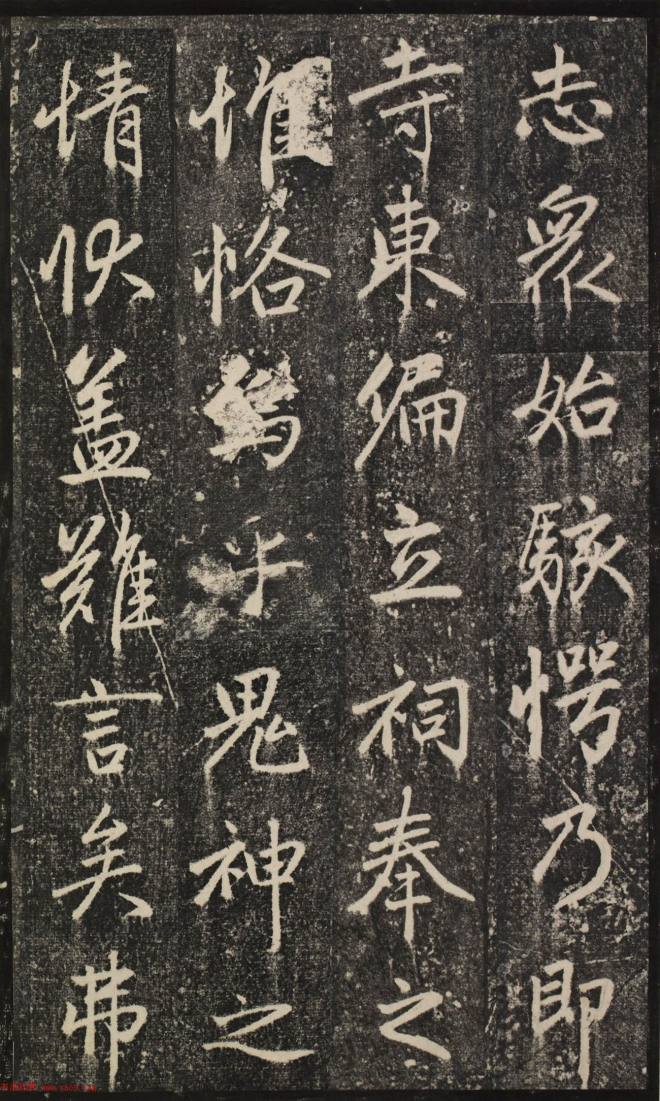 志眾始駭愕乃即
寺東偏立祠奉之
惟恪焉乎鬼神之
情狀蓋難言矣弗